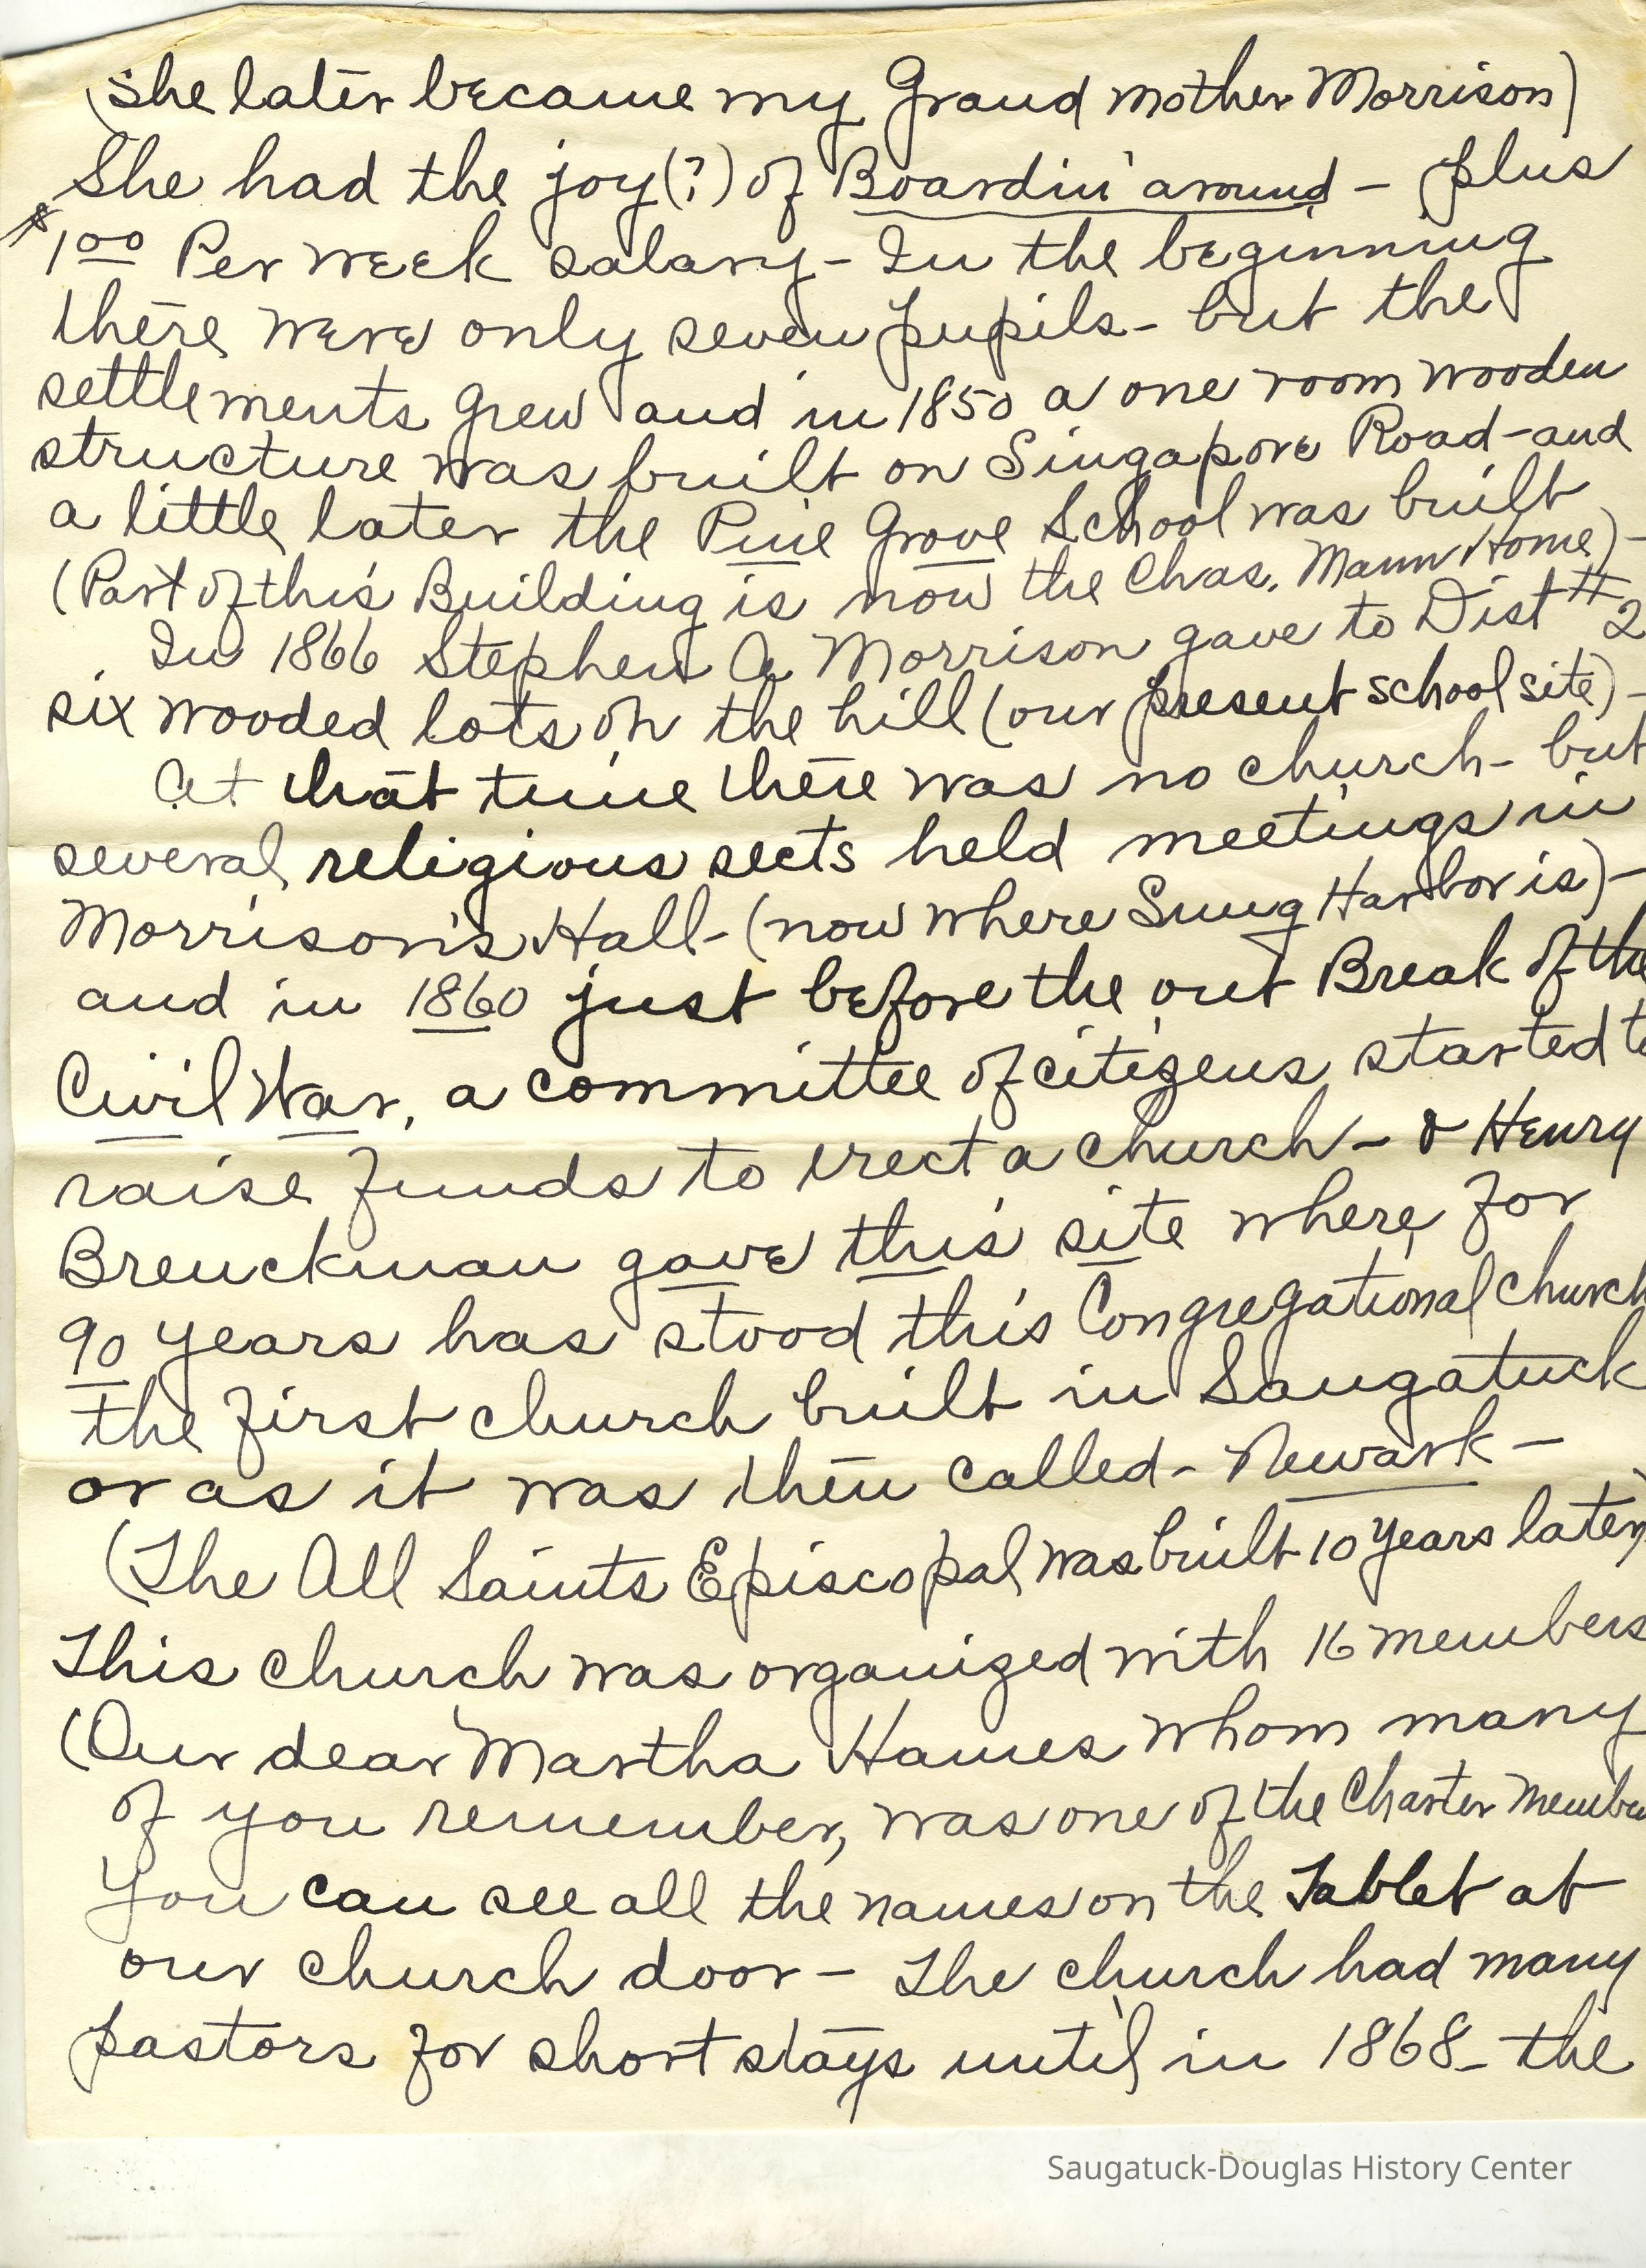 (She later became my Grand mother Morrison)
She had the joy(?) of Boardin' around - plus
$100 Per week salary - In the beginning
there were only seven pupils - but the
settlements grew and in 1850 a one room wooden
structure was built on Singapore Road - and
a little later the Pine Grove School was built
(Part of this Building is now the Chas. Mann Home) -
In 1866 Stephen A Morrison gave to Dist #2
six wooded lots on the hill (our present school site) -
At that time there was no church - but
several religious sects held meetings in
Morrison's Hall - (now where Snug Harbor is) -
and in 1860 just before the out Break of the
Civil War, a committee of citizens started to
raise funds to erect a church - & Henry
Breuckman gave this site where for
90 years has stood this Congregational church
the first church built in Saugatuck
or as it was then called - Newark -
(The All Saints Episcopal was built 10 years later)
This church was organized with 16 members
(Our dear Martha Hames whom many
of you remember, was one of the Charter Member
You can see all the names on the Tablet at
our church door - The church had many
pastors for short stays until in 1868 - the
Saugatuck-Douglas History Center